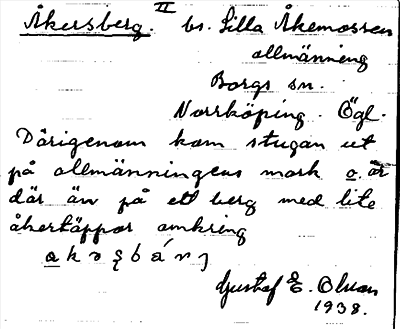 Åkersberg. II bs. Lilla Åkemossen
allmänning
Borgs sn.
Norrköping. Ögl.
Därigenom kom stugan ut
på allmänningens mark o. är
där än på ett berg med lite
åkertäppor omkring
Gustaf E. Olson
1938.